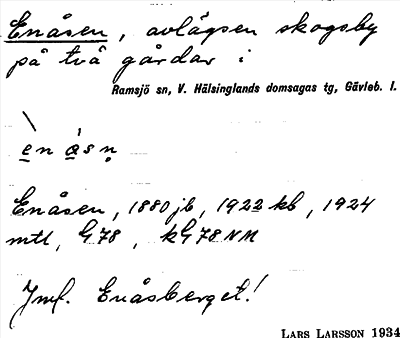 Enåsen, avlägsen skogsby
på två gårdar i
Ramsjö sn, V. Hälsinglands domsagas tg, Gävleb. l.
en åsn
Enåsen, 1880 jb, 1922 kb, 1924
mtl, G78, kG78NM
Jmf. Enåsberget!
LARS LARSSON 1934